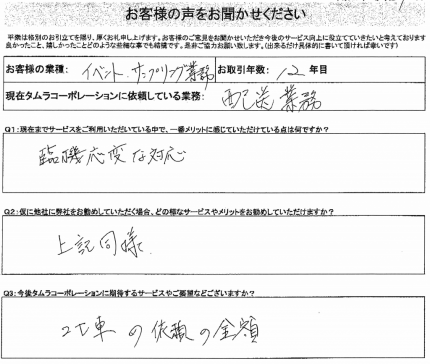 お客様の声をお聞かせください
平素は格別のお引立てを賜り、厚くお礼申し上げます。お客様のご意見をお聞かせいただき今後のサービス向上に役立てていきたいと考えております
良かったこと、嬉しかったことどのような些細な事でも結構です。是非ご協力お願い致します。(出来るだけ具体的に書いて頂ければ幸いです)
お客様の業種: イベント・サンプリング業務 お取引年数: 12 年目
現在タムラコーポレーションに依頼している業務: 配送業務
Q1:現在までサービスをご利用いただいている中で、一番メリットに感じていただけている点は何ですか?
臨機応変な対応
Q2:仮に他社に弊社をお勧めしていただく場合、どの様なサービスやメリットをお勧めしていただけますか?
上記同様
Q3:今後タムラコーポレーションに期待するサービスやご要望などございますか?
2t車の依頼の金額